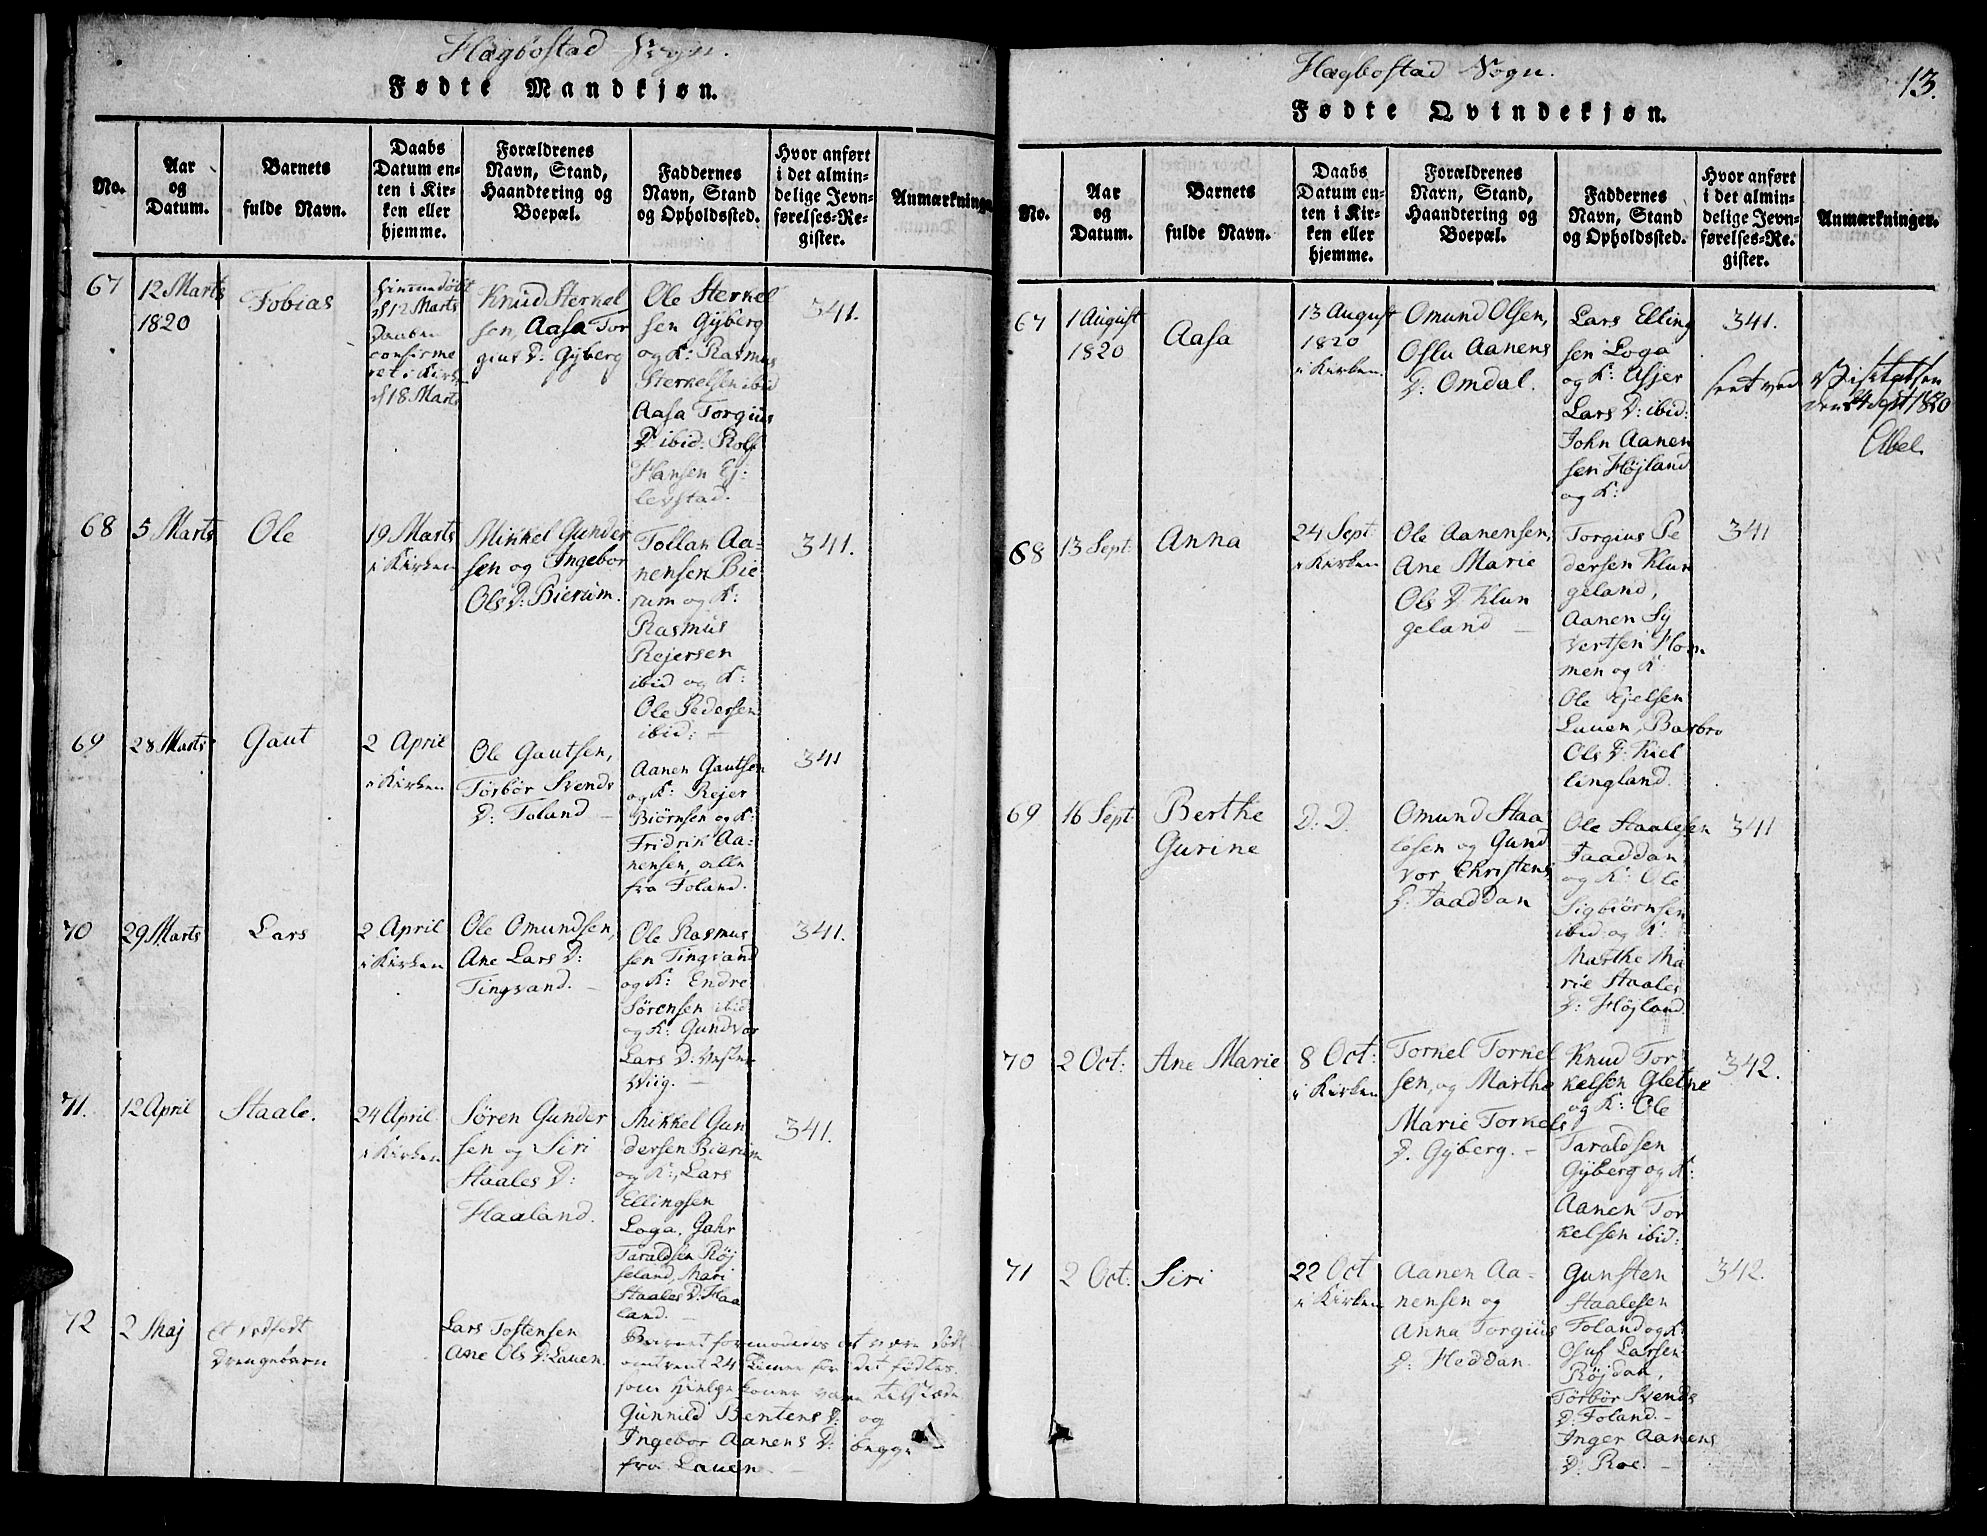 Hægbostad Sogn.
Fødte Mandkjøn.
No.
Aar
og
Datum.
Barnets
fulde Navn.
Daabs
Datum en-
ten i Kir-
ken eller
hjemme.
Forældrenes
Navn, Stand,
Haandtering og
Boepæl.
Faddernes
Navn, Stand
og Opholdssted.
Hvor anført
i det almin-
delige Jevn-
førelses-Re-
gister.
Anmærkninge
67
12 Marts
1820
Tobias
Himmedøbt
d 12 Marts
Daaben
confirme
ret i Kirk
d 18 Marts
Knud Sterkel
sen, Aasa Tor
gius D: Gÿberg
Ole Sterkel
sen Gÿberg
og K: Rasmus
Sterkelsen ibid
Aasa Torgius
D ibid: Rolf
Hansen Ej-
levstad.
341.
68
5 Marts
Ole
19 Marts
i Kirken
Mikkel Gunder
sen og Ingebor
Ols D: Bierum.
Tollan Aa-
nensen Bie
rum og K:
Rasmus
Rejersen
ibid og K:
Ole Pedersen
ibid: –
341.
69
28 Marts
Gaut
2 April
i Kirken
Ole Gautsen,
Torbør Svends
D: Foland –
Aanen Gautsen
og K: Rejer
Biørnsen og K:
Fridrik Aa-
nensen, alle
fra Foland.
341
70
29 Marts
Lars
2 April
i Kirken
Ole Omundsen,
Ane Lars D:
Tingvand. –
Ole Rasmus
sen Tingvand
og K: Endre
Sørensen ibid
og K: Gundvor
Lars D: Vester
Wiig. –
341.
71.
12 April
Staale.
24 April
i Kirken
Søren Gunder
sen og Siri
Staales D:
Haaland.
Mikkel Gun
dersen Bierum
og K:, Lars
Ellingsen
Loga, Gahr
Taraldsen Røj
seland, Mari
Staales D: Haa
land. –
341.
72
2 Maj
et dødfødt
Drengebarn
Lars Tostensen
Ane Ols D: Lauen.
Barnet formodedes at være død
omtrent 24 Timer før det fødtes.
som Hielpekoner vare tilstæde
Gunnild Bentens D: og
Ingebor Aanens D: begge
fra Lauen. –
Hægbostad Sogn.
13.
Fødte Qvindekjøn.
No.
Aar
og
Datum.
Barnets
fulde Navn.
Daabs
Datum en-
ten i Kir-
ken eller
hjemme.
Forældrenes
Navn, Stand,
Haandtering og
Boepæl.
Faddernes
Navn, Stand
og Opholdssted.
Hvor anført
i det almin-
delige Jevn-
førelses-Re-
gister.
Anmærkninger.
67
1 August
1820
Aasa
13 August
1820
i Kirken.
Omund Olsen,
Oslu Aanens
D: Omdal.
Lars Elling
sen Loga
og K: Asjer
Lars D: ibid:
John Aanen
sen Højland
og K:
341.
seet ved Visitatsen
den 24 Sept 1820
Abel.
68
13 Sept:
Anna
24 Sept
i Kirken
Ole Aanensen,
Ane Marie
Ols D: Klun
geland –
Torgius Pe
dersen Klun
geland,
Aanen Sÿ
vertsen Hom
men og K
Ole Kjelsen
Lauen, Barbro
Ols D: Kiel
lingland.
341
69
16 Sept:
Berthe
Gurine
D: D.
Omund Staa
lesen og Gund
vor Christens
D: Jaaddan
Ole Staalesen
Jaaddan
og K: Ole
Sigbiørnsen
ibid: og K.
Marthe Ma
rie Staales
D: Højland.
341
70
2 Oct:
Ane Marie
8 Oct:
i Kirken
Torkel Torkel
sen, og Marthe
Marie Torkels
D. Gÿberg. –
Knud Tor
kelsen Gletne
og K: Ole
Taraldsen
Gÿberg og K:
Aanen Tor
kelsen ibid:
342.
71
2 Oct:
Siri
22 Oct
i Kirken
Aanen Aa-
nensen og
Anna Torgius
D: Heddan.
Gunsten
Staalesen
Foland og K:
Osuf Larsen
Røjdan,
Torbør Svends
D: Foland. –
Inger Aanens
D: Roe. –
342.